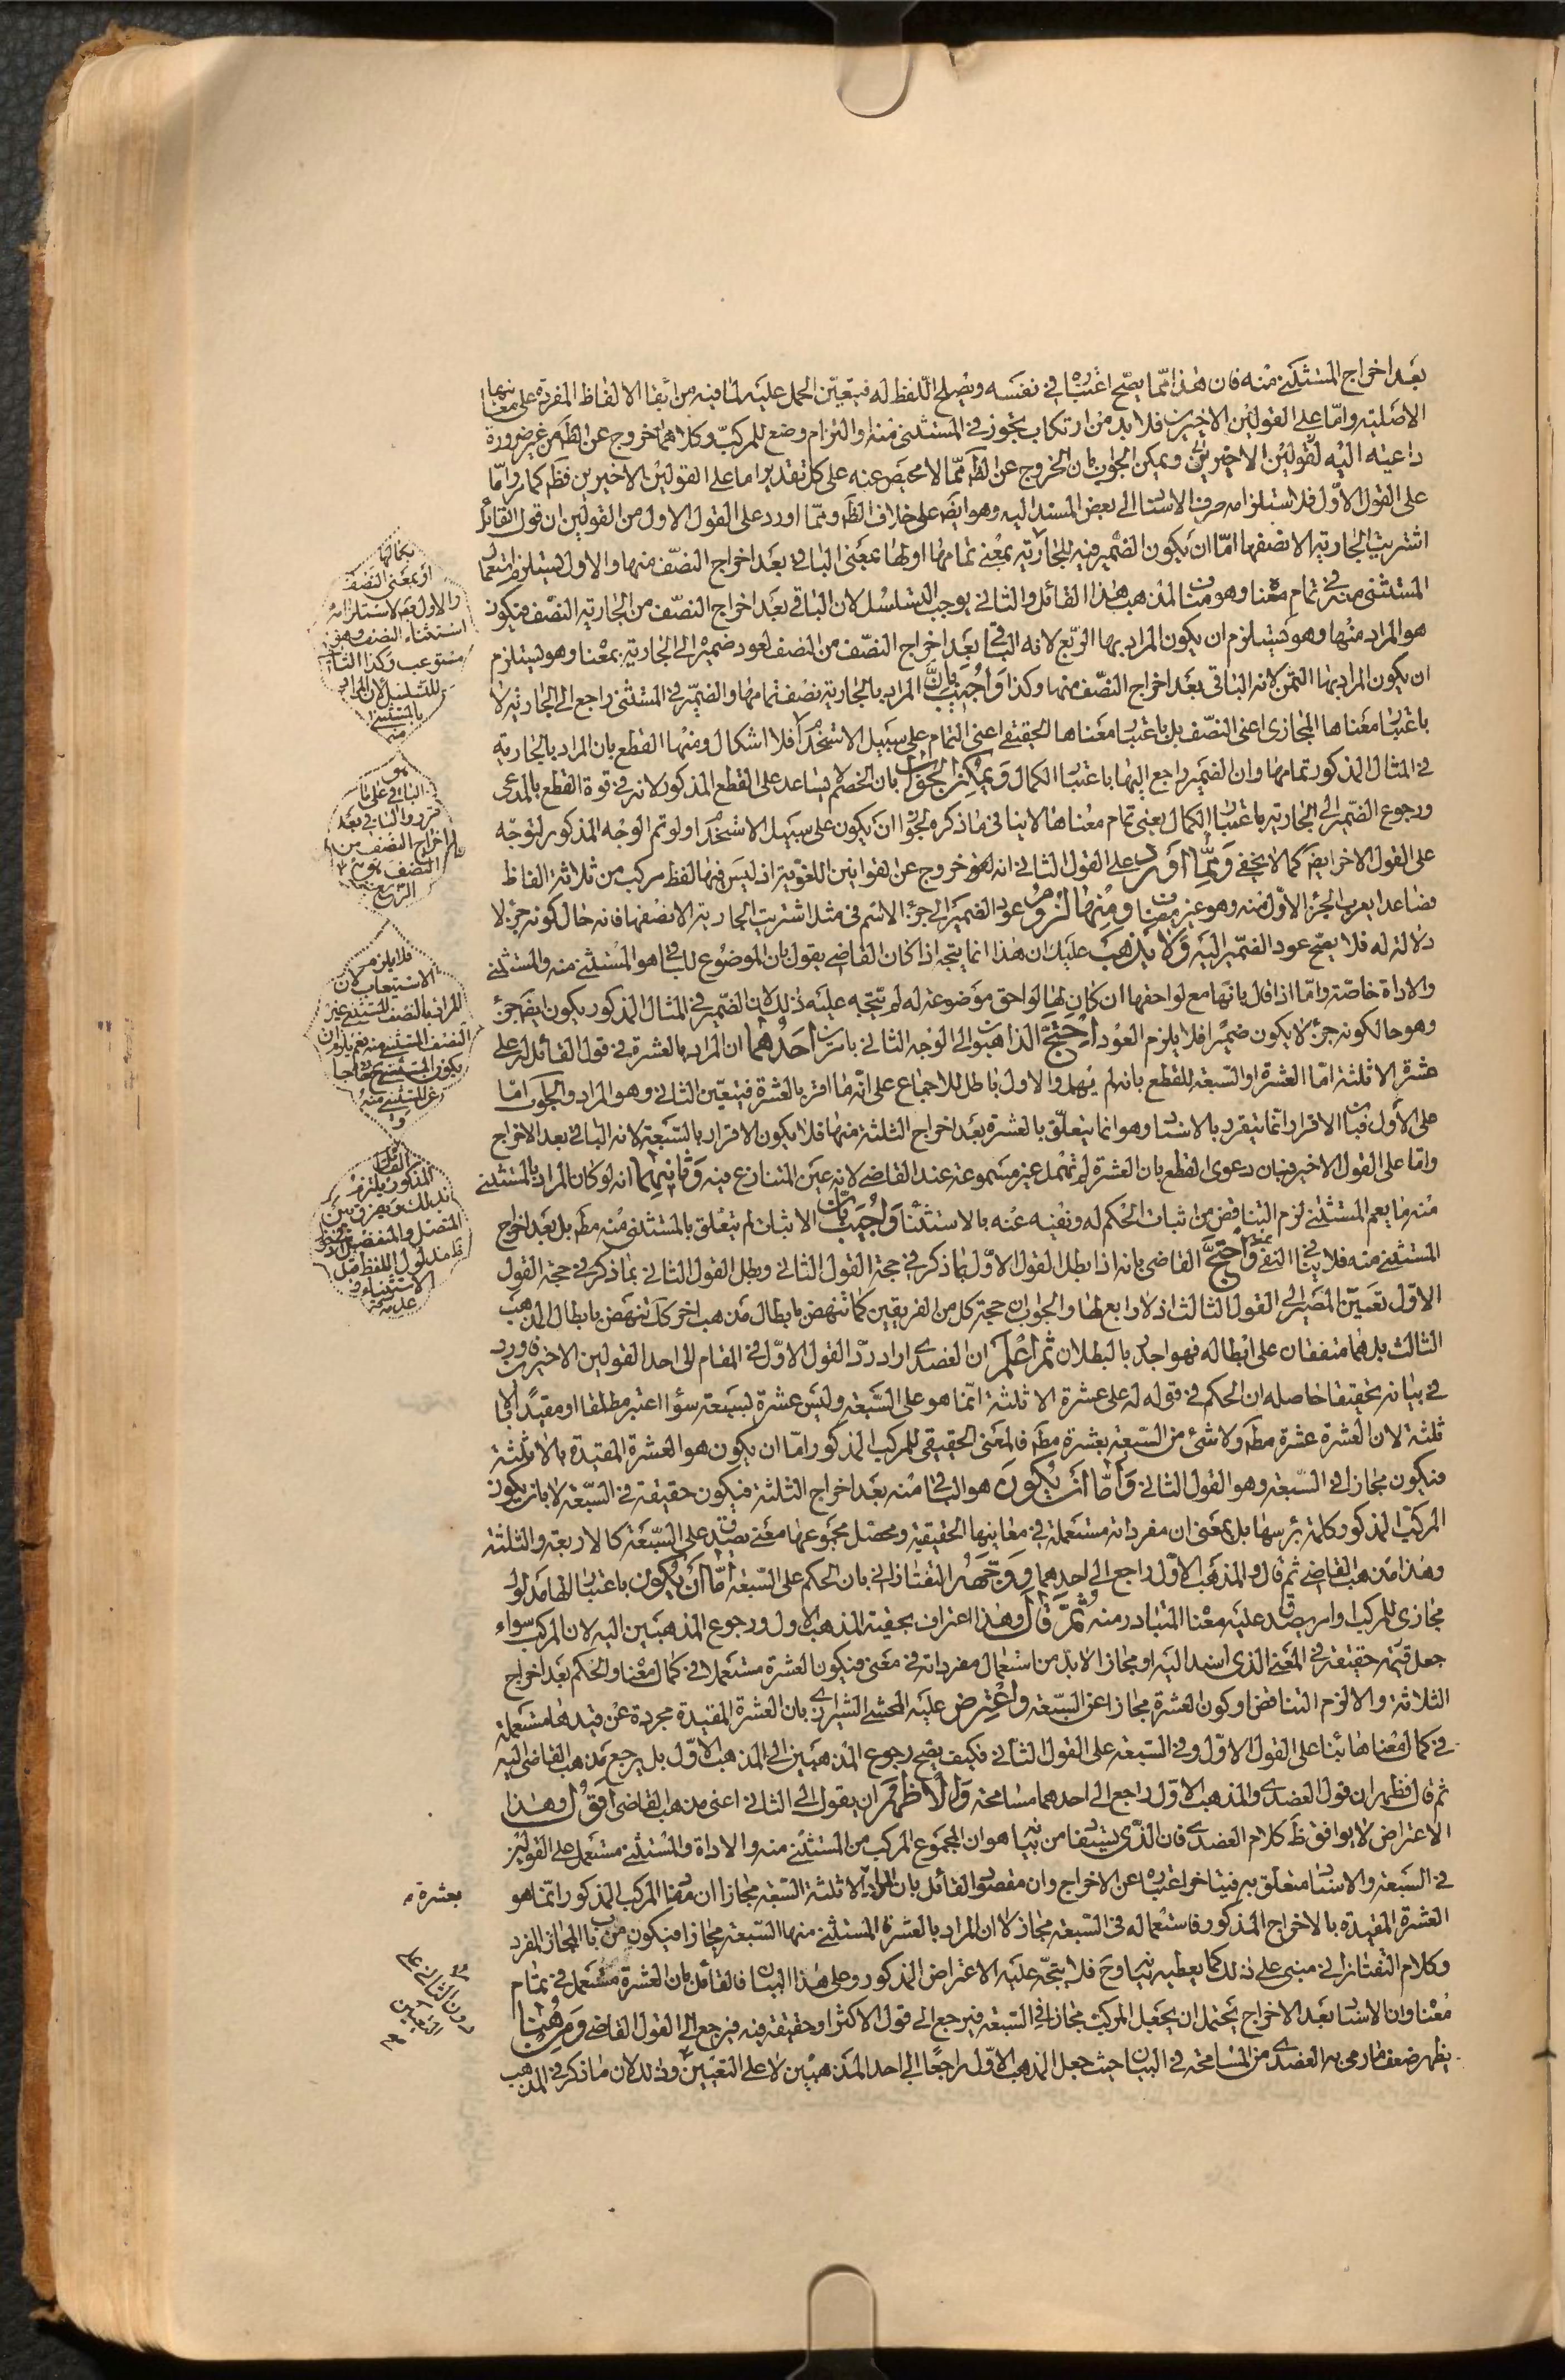 بعد اخراج المستثنى منه فان هذا مما يصح اعتباره في نفسه ويصلح اللفظ له فيتعين الحمل عليه لما فيه من ابقا الالفاظ المفردة على معانيها
الاصلية واما على القولين الاخيرين فلا بد من ارتكاب تجوز في المستثنى منه او التزام وضع للمركب وكلاهما خروج عن الظ من غير ضرورة
داعية اليه لقولين الاخيرين ويمكن الجواب بان الخروج عن الظ مما لا محيص عنه على كل تقدير اما على القولين الاخيرين فظ كما مر واما
على القول الاول فلاستلزامه صرف الاسناد الى بعض المسند اليه وهو ايض على خلاف الظ ومما اورد على القول الاول من القولين ان قول القائل
اشتريت الجارية الا نصفها اما ان يكون الضمير فيه للجارية بمعنى تمامها او لها بمعنى الباقي بعد اخراج النصف منها والاول يستلزم استعمال
المستثنى منه في تمام معناه وهو مناف لمذهب هذا القائل والثاني يوجب التسلسل لان الباقي بعد اخراج النصف من الجارية النصف فيكون
هو المراد منها وهو يستلزم ان يكون المراد بها الربع لانه الباقي بعد اخراج النصف من النصف لعود ضميره الى الجارية بمعناه وهو يستلزم
ان يكون المراد بها الثمن لانه الباقي بعد اخراج النصف منها وكذا واجيب بان المراد بالجارية نصف تمامها والضمير في المستثنى راجع الى الجارية لا
باعتبار معناها المجازى اعنى النصف بل باعتبار معناها الحقيقي اعنى التمام على سبيل الاستخدام فلا اشكال ومنها القطع بان المراد بالجارية
في المثال المذكور تمامها وان الضمير راجع اليها باعتبار الكمال ويمكن الجواب بان الخصم لا يساعد على القطع المذكور لانه في قوة القطع بالمدعى
ورجوع الضمير الى الجارية باعتبار الكمال يعنى تمام معناها لا ينافى ما ذكره لجواز ان يكون على سبيل الاستخدام ولو تم الوجه المذكور لتوجه
على القول الاخر ايض كما لا يخفى ومما اورد على القول الثاني انه خروج عن القوانين اللغوية اذ ليس فيها لفظ مركب من ثلاثة الفاظ
فصاعدا يعرب الجزء الاول منه وهو غير مضاف ومنها لزوم عود الضمير الى جزء الاسم في مثل اشتريت الجارية الا نصفها فانه حال كونه جزء لا
دلالة له فلا يصح عود الضمير اليه ولا يذهب عليك ان هذا انما يتجه اذا كان القاضي يقول بان الموضوع للباقي هو المستثنى منه والمستثنى
والاداة خاصة واما اذا قال بانها مع لواحقها ان كان لها لواحق موضوعة له لم يتجه عليه ذلك لان الضمير في المثال المذكور يكون ايض جزء
وهو حال كونه جزء لا يكون ضميرا فلا يلزم العود احتج الذاهبون الى الوجه الثاني بامرين احدهما ان المراد بالعشرة في قول القائل له على
عشرة الا ثلثة اما العشرة او السبعة للقطع بانه لم يهمل والاول باطل للاجماع على انه ما اقر بالعشرة فيتعين الثاني وهو المراد والجواب اما
على الاول فبان الاقرار انما يتقرر بالاسناد وهو انما يتعلق بالعشرة بعد اخراج الثلثة منها فلا يكون الاقرار بالسبعة لانه الباقي بعد الاخراج
واما على القول الاخير فبان دعوى القطع بان العشرة لم تهمل غير مسموعة عند القاضي لانه عين المتنازع فيه وثانيهما انه لو كان المراد بالمستثنى
منه ما يعم المستثنى لزم التناقض من اثبات الحكم له ونفيه عنه بالاستثناء واجيب بان الاثبات لم يتعلق بالمستثنى منه مط بل بعد اخراج
المستثنى منه فلا ينافى النفى عنه واحتج القاضى بانه اذا بطل القول الاول بما ذكر في حجة القول الثاني وبطل القول الثاني بما ذكر في حجة القول
الاول تعين المصير الى القول الثالث اذ لا رابع لها والجواب ان حجة كل من الفريقين كما تنهض بابطال مذهب اخر كك تنهض بابطال المذهب
الثالث بل هما متفقان على ابطاله فهو اجدر بالبطلان ثم اعلم ان العضدى اراد رد القول الاول في المقام الى احد القولين الاخيرين فاورد
في بيانه تحقيقا حاصله ان الحكم في قوله له على عشرة الا ثلثة انما هو على السبعة وليس عشرة بسبعة سواء اعتبر مطلقا او مقيدا بالا
ثلثة لان العشرة عشرة مط ولا شئ من السبعة بعشرة مط فالمعنى الحقيقي للمركب المذكور اما ان يكون هو العشرة المقيدة بالا ثلثة
فيكون مجازا في السبعة وهو القول الثاني واما ان يكون هو الباقي منه بعد اخراج الثلثة فيكون حقيقة في السبعة لا بان يكون
المركب المذكور كلمة برسها بل بمعنى ان مفرداته مستعملة في معانيها الحقيقية ومحصل مجموعها معنى يصدق على السبعة كالاربعة والثلثة
وهذا مذهب القاضي ثم قال والمذهب الاول راجع الى احدهما ووجهه التفتازاني بان الحكم على السبعة اما ان يكون باعتبار انها مدلول
مجازى للمركب او امر يصدق عليه معناه المتبادر منه ثم قال وهذا اعتراف بحقية المذهب الاول ورجوع المذهبين اليه لان المركب سواء
جعل قيمته حقيقة في المعنى الذى اسند اليه او مجازا لا بد من استعمال مفرداته في معنى فيكون العشرة مستعملا في كمال معناه والحكم بعد اخراج
الثلاثة والا لزم التناقض او كون العشرة مجازا عن السبعة واعترض عليه المحشى الشيرازى بان العشرة المقيدة مجردة عن قيدها مستعملة
في كمال معناها بناء على القول الاول وفي السبعة على القول الثاني فكيف يصح رجوع المذهبين الى المذهب الاول بل يرجع مذهب القاضى اليه
ثم قال فظهر ان قول العضدى والمذهب الاول راجع الى احدهما مسامحة والاظهر ان يقول الى الثاني اعنى مذهب القاضى اقول وهذا
الاعتراض لا يوافق ظ كلام العضدى فان الذى يستفاد من بيانه هو ان المجموع المركب من المستثنى منه والاداة والمستثنى مستعمل على القولين
في السبعة والاسناد متعلق به فيتاخر اعتباره عن الاخراج وان مقصود القائل بان المراد الا ثلثة السبعة مجازا ان مفاد المركب المذكور انما هو
العشرة المقيدة بالاخراج المذكور فاستعماله في السبعة مجاز لا ان المراد بالعشرة المستثنى منها السبعة مجازا فيكون من باب المجاز المفرد
وكلام التفتازاني مبنى على ذلك كما يعطيه بيانه وح فلا يتجه عليه الاعتراض المذكور وعلى هذا البيان فالقائل بان العشرة مستعمل في تمام
معناه وان الاسناد بعد الاخراج يحتمل ان يجعل المركب مجازا في السبعة فيرجع الى قول الاكثر او حقيقة فيه فيرجع الى القول القاضي ومن هنا
يظهر ضعف ما رمى به العضدى من المسامحة في البيان حيث جعل المذهب الاول راجعا الى احد المذهبين لا على التعيين وذلك لان ما ذكر في المذهب
بكمالها
او بمعنى النصف
والاول يوجب لاستلزامه
استثناء النصف
مستوعب وكذا الثاني
للتسلسل لان المراد
بالمستثنى
منه
هو
الباقي على ما
قرروا الباقي بعد
اخراج النصف من
النصف هو
الربع
فلا يلزم
الاستيعاب لان
المراد بالنصف المستثنى غير
النصف المستثنى منه نعم يلزم ان
يكون المستثنى خارجا
عن المستثنى منه
القائل
المذكور يلتزم
بذلك ويفرق بين
المتصل والمنفصل
مدلول اللفظ قبل
الاستثناء
بعشرة
دون الثاني على
التعيين